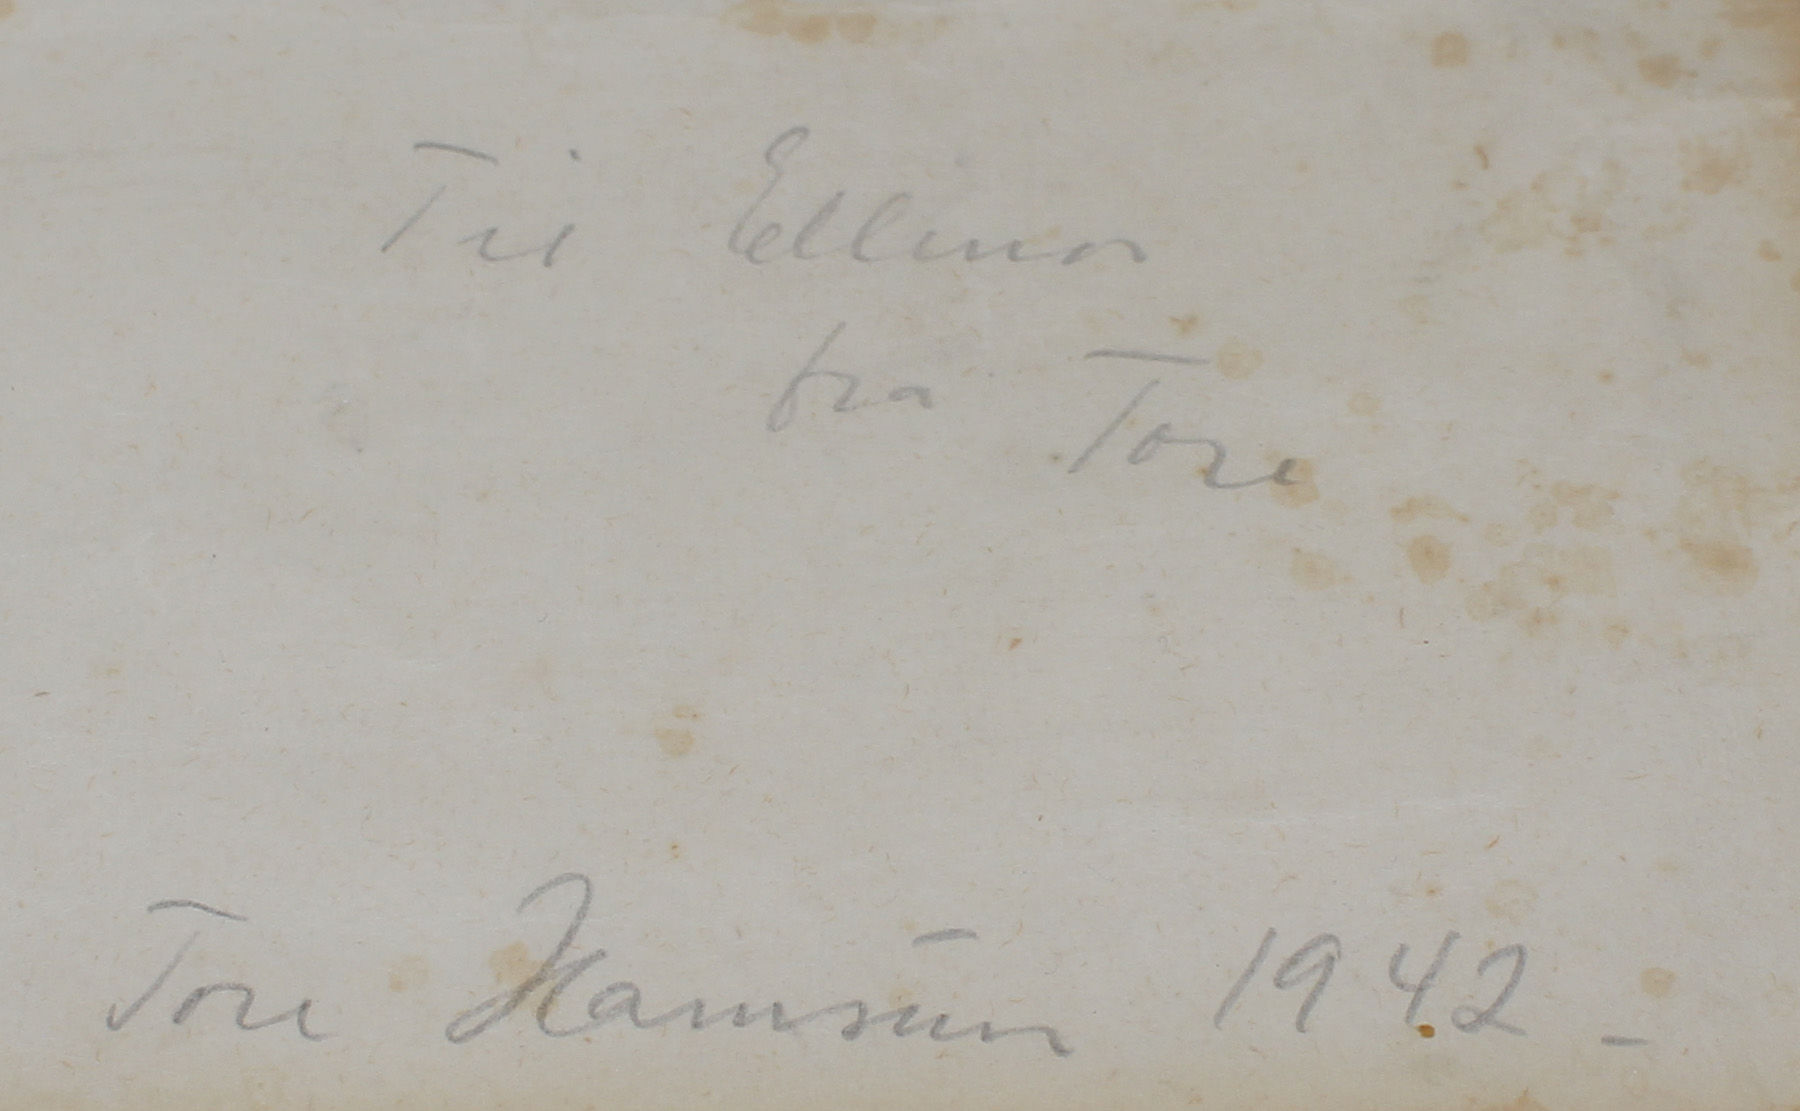 Til Ellinor
fra Tore
Tore Hamsun 1942 –